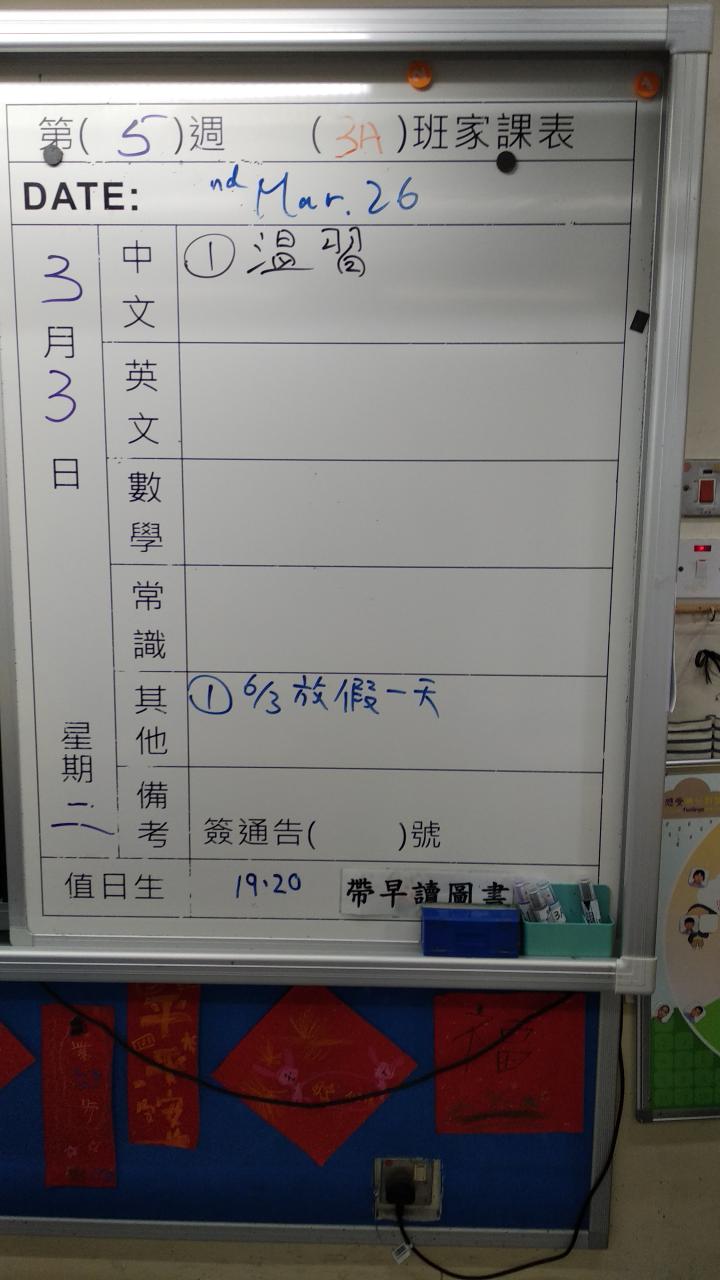 第( 5 )週 ( 3A )班家課表
DATE: nd Mar. 26
3月3日
星期二
中文
① 温習(2)
英文
數學
常識
其他
① 6/3 放假一天
備考
簽通告( )號
值日生
19.20
帶早讀圖書
福